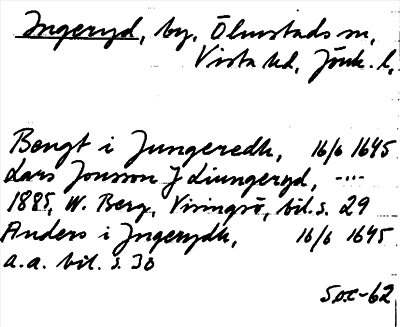 Ingeryd, by, Ölmstads sn,
Vista hd, Jönk. l,
Bengt i Jungeredh, 16/6 1645
Lars Jonsson J Liungeryd, -..-
1885, W. Berg, Visingsö, bil. s. 29
Anders i Jngerydh, 16/6 1645
a.a. bil. s. 30
SOC-62